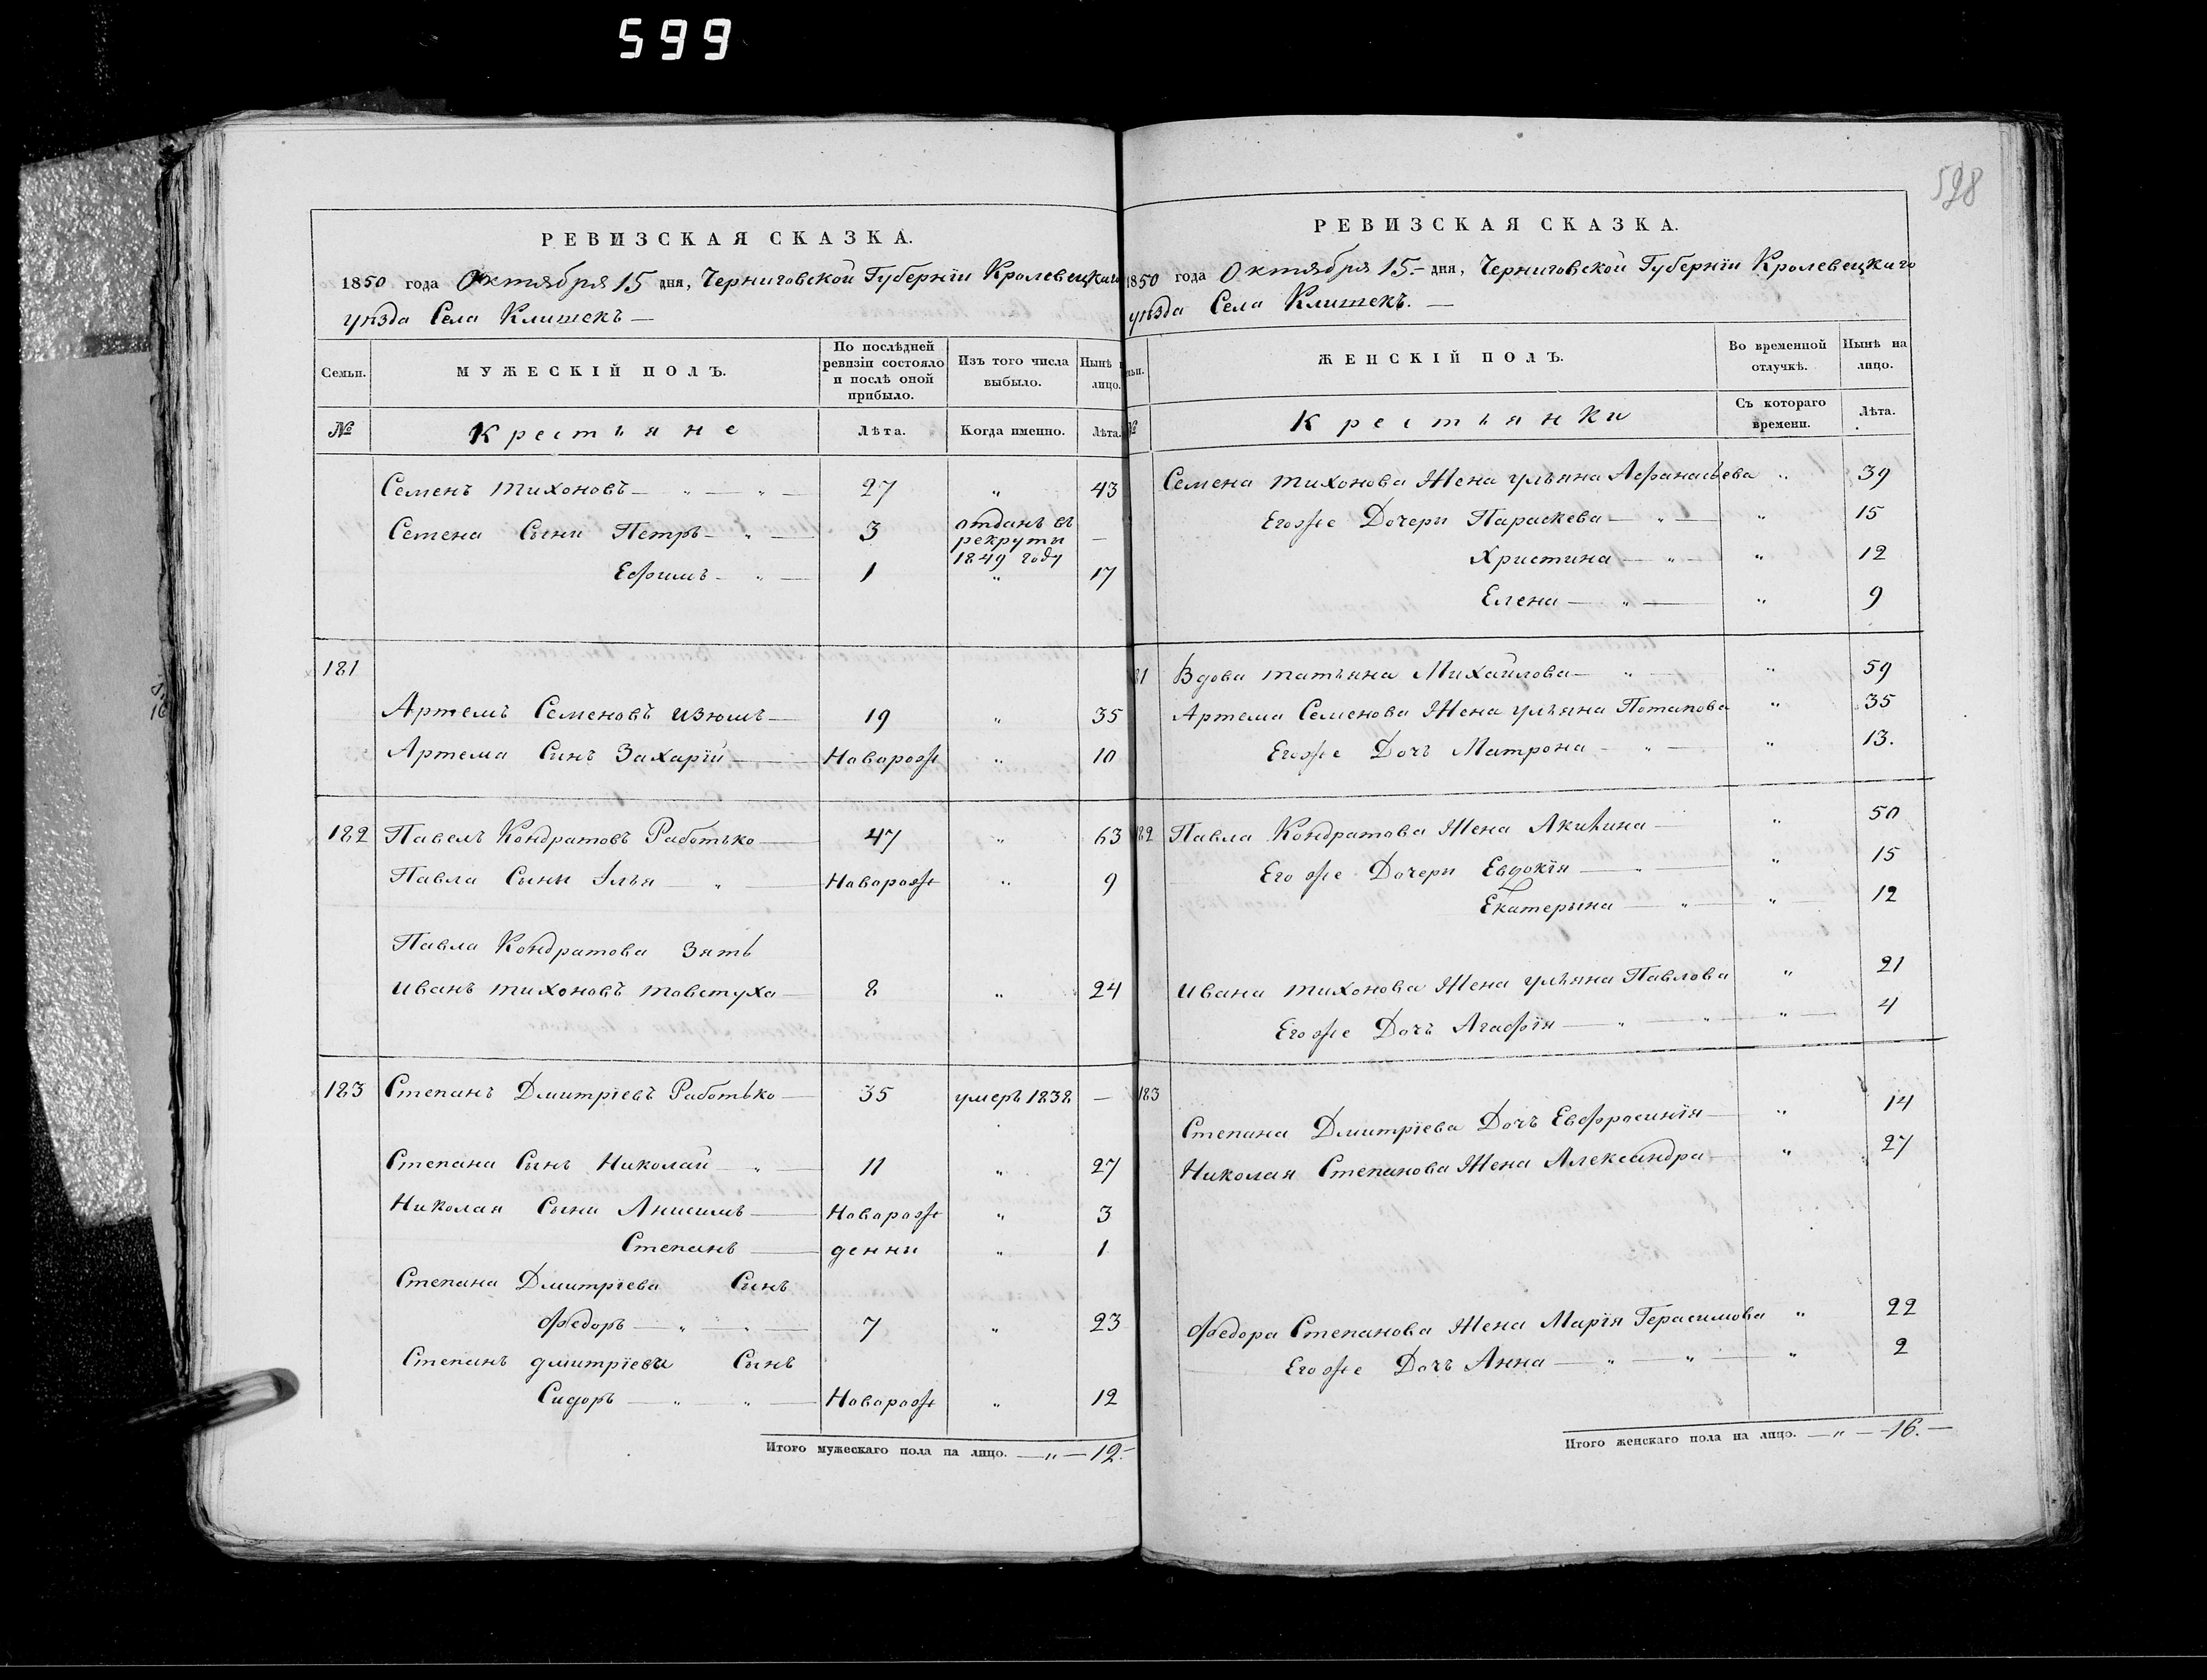 599
РЕВИЗСКАЯ СКАЗКА.
1850 года Октября 15 дня, Черниговской Губерніи Кролевецкаго
уѣзда Села Клишекъ —
Семьи. МУЖЕСКІЙ ПОЛЪ. По послѣдней ревизіи состояло и послѣ оной прибыло. Изъ того числа выбыло. Нынѣ лицо.
№ Крестьяне Лѣта. Когда именно. Лѣта.
Семенъ Тихоновъ — „ — „ — 27 „ 43
Семена Сыны Петръ — „ — 3 отданъ въ рекруты 1849 году —
Ефимъ — „ — 1 „ 17
181
Артемъ Семеновъ Изюмъ — 19 „ 35
Артема Сынъ Захарій —Новорож „ 10
182 Павелъ Кондратовъ Работько — 47 „ 63
Павла Сыны Илья — „ —Новорож „ 9
Павла Кондратова Зять
Иванъ Тихоновъ Товстуха — 8 „ 24
183 Степанъ Дмитріевъ Работько — 35 умеръ 1838 —
Степана Сынъ Николай — „ — 11 „ 27
Николая Сыны Анисимъ — Новорож „ 3
Степанъ — денни „ 1
Степана Дмитріева Сынъ
Федоръ — „ — „ — 7 „ 23
Степанъ Дмитріева Сынъ
Сидоръ — „ — „ — Новорож „ 12
Итого мужескаго пола на лицо. — „ — 12.
598
РЕВИЗСКАЯ СКАЗКА.
1850 года Октября 15. — дня, Черниговской Губерніи Кролевецкаго
уѣзда Села Клишекъ. —
ЖЕНСКІЙ ПОЛЪ. Во временной отлучкѣ. Нынѣ на лицо.
№ Крестьянки Съ котораго времени. Лѣта.
Семена Тихонова Жена Ульяна Афанасьева „ 39
Егоже Дочери Параскева — „ — „ 15
Христина — „ — „ 12
Елена — „ — „ 9
81 Вдова Татьяна Михайлова — „ — „ 59
Артема Семенова Жена Ульяна Потапова „ 35
Егоже Дочъ Матрона — „ — „ 13.
82 Павла Кондратова Жена Акилина — „ 50
Егоже Дочери Евдокія — „ — „ 15
Екатерына — „ — „ 12
Ивана Тихонова Жена Ульяна Павлова „ 21
Егоже Дочъ Агафія — „ — „ — „ 4
183
Степана Дмитріева Дочъ Евфросинія — „ 14
Николая Степанова Жена Александра „ 27
Федора Степанова Жена Марія Герасимова „ 22
Егоже Дочъ Анна — „ — „ — „ 2
Итого женскаго пола на лицо. — „ — 16. —